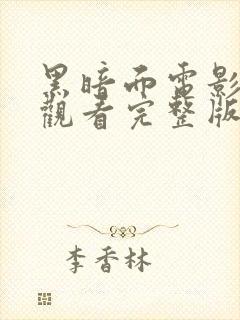 黑暗而電影
觀看完整版
李香林